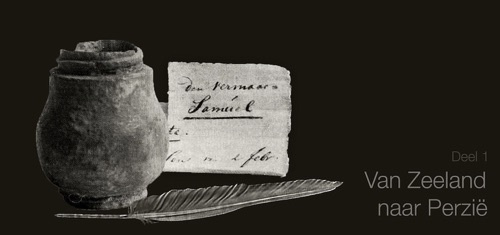 den vermaar=
Samüel
te.
Deel 1
Van Zeeland
naar Perzië